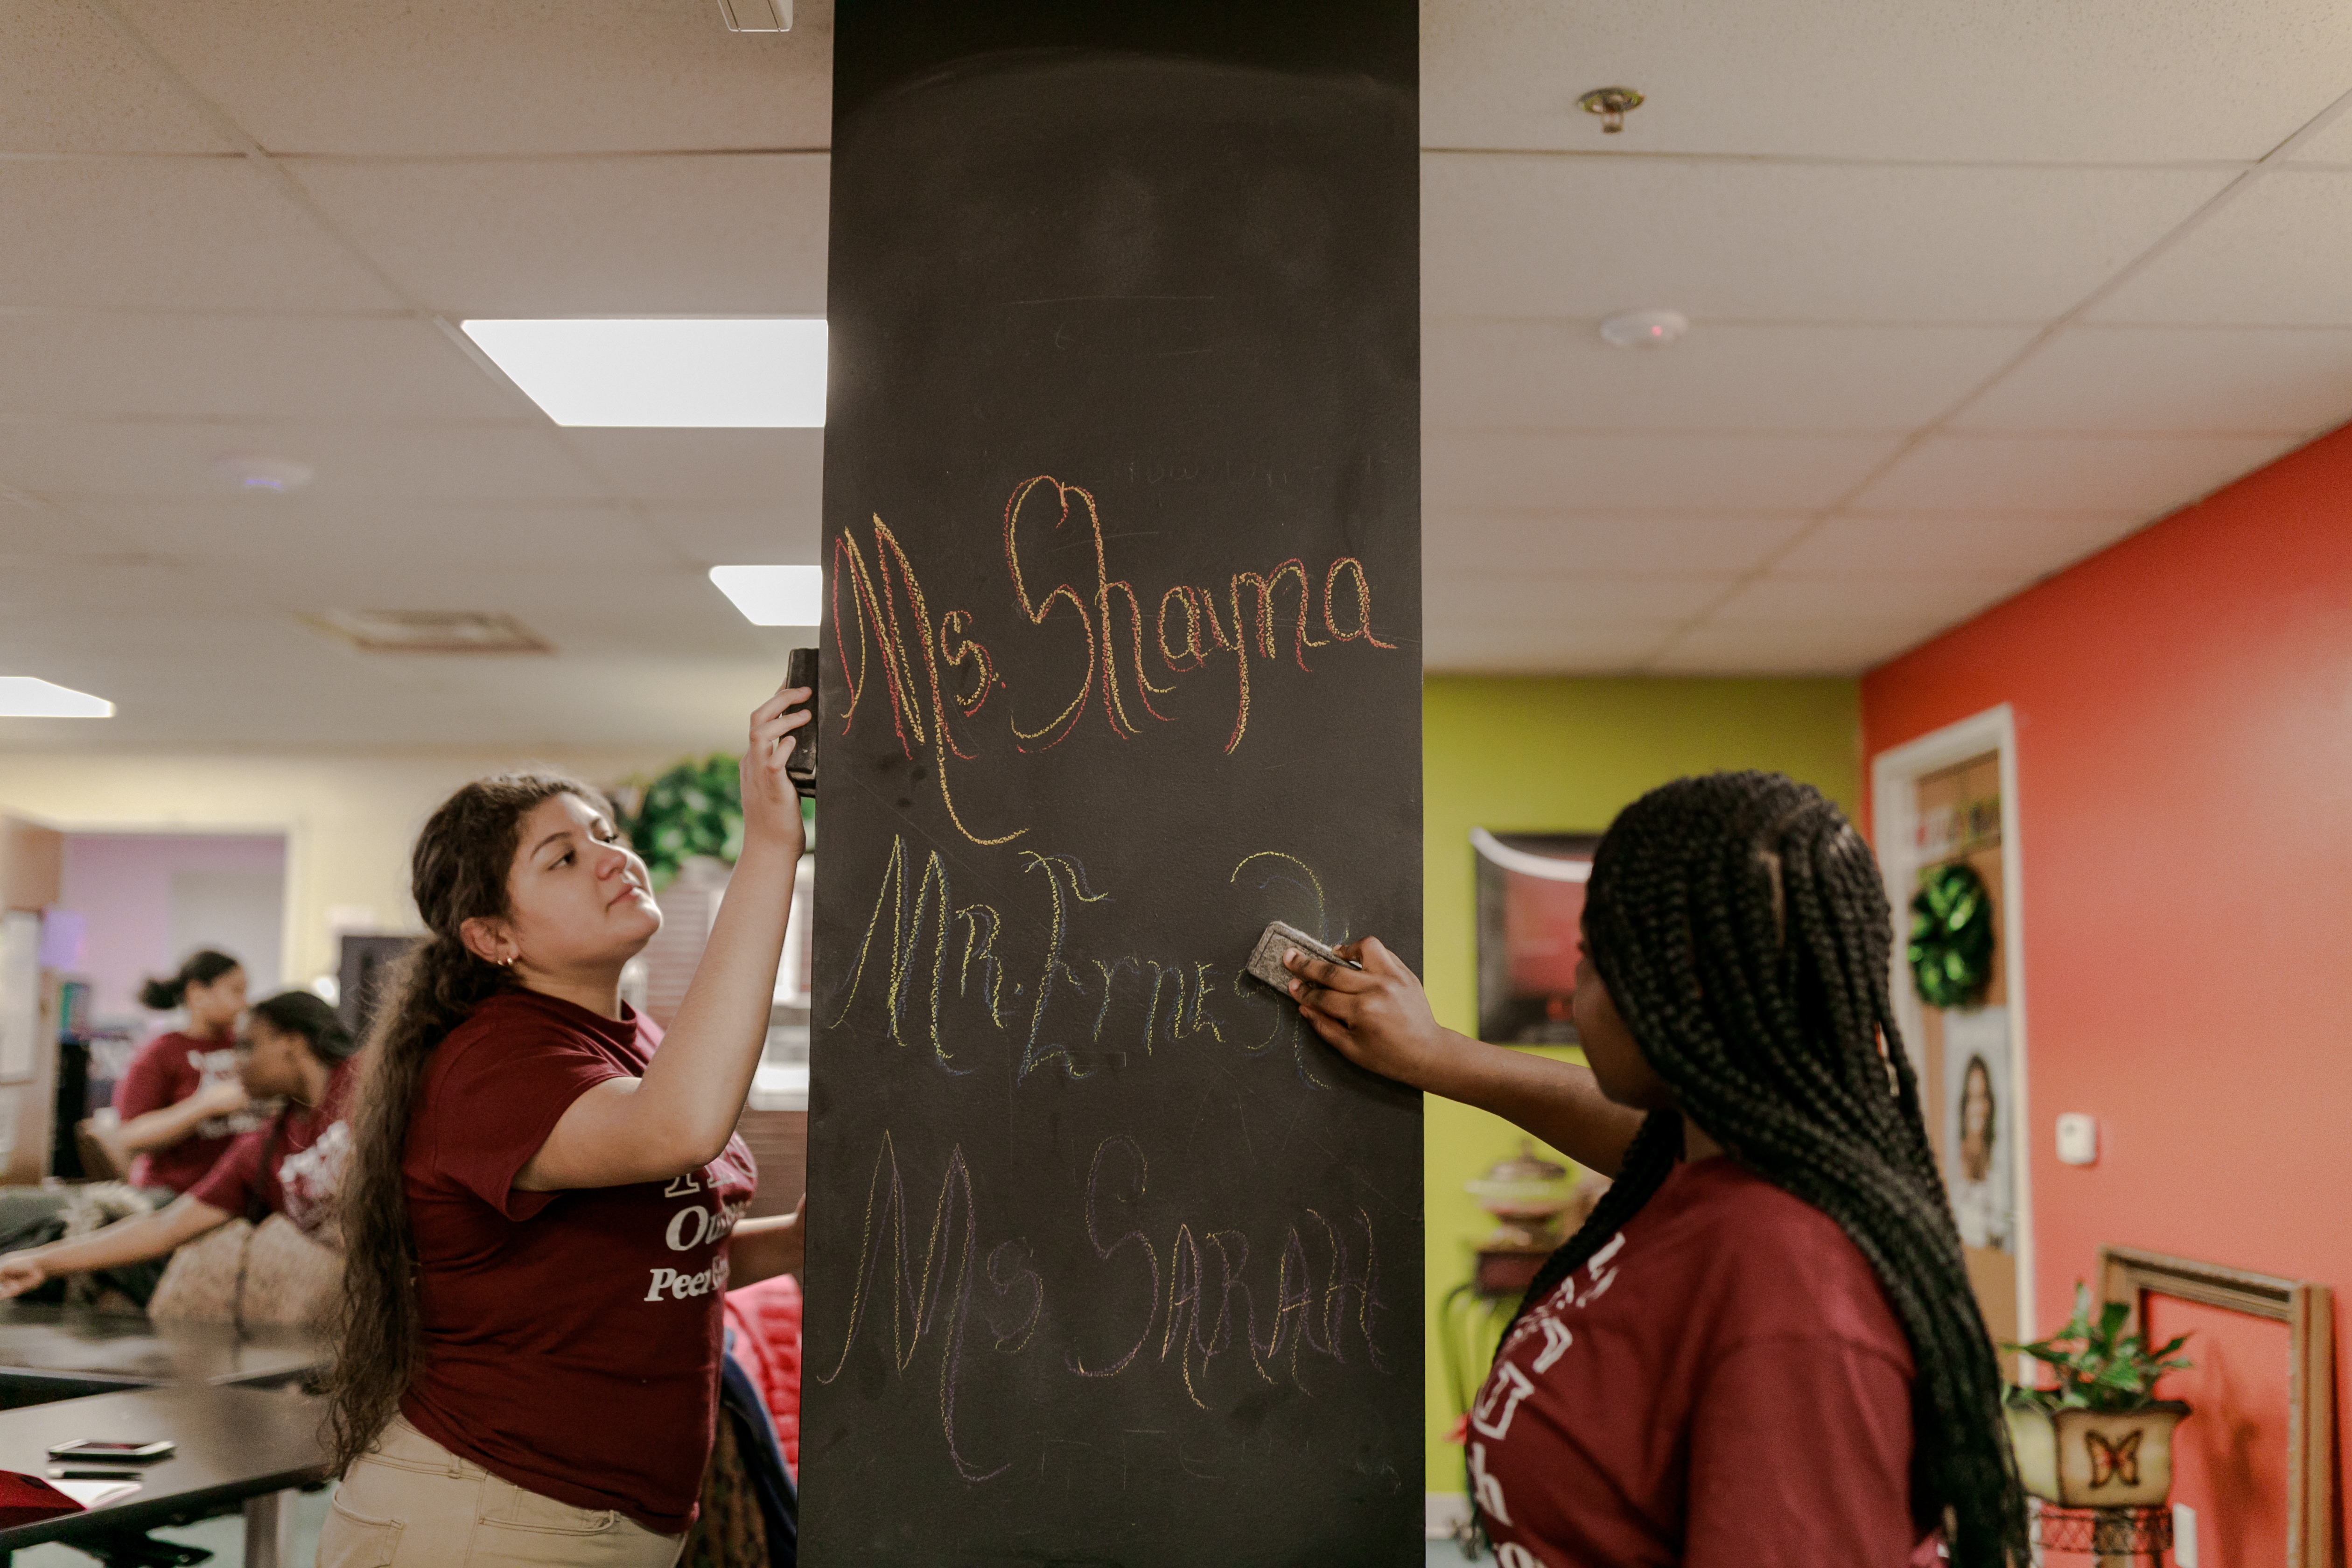 Ms. Shayna
MR. Ernes
Ms SARAH
Peer